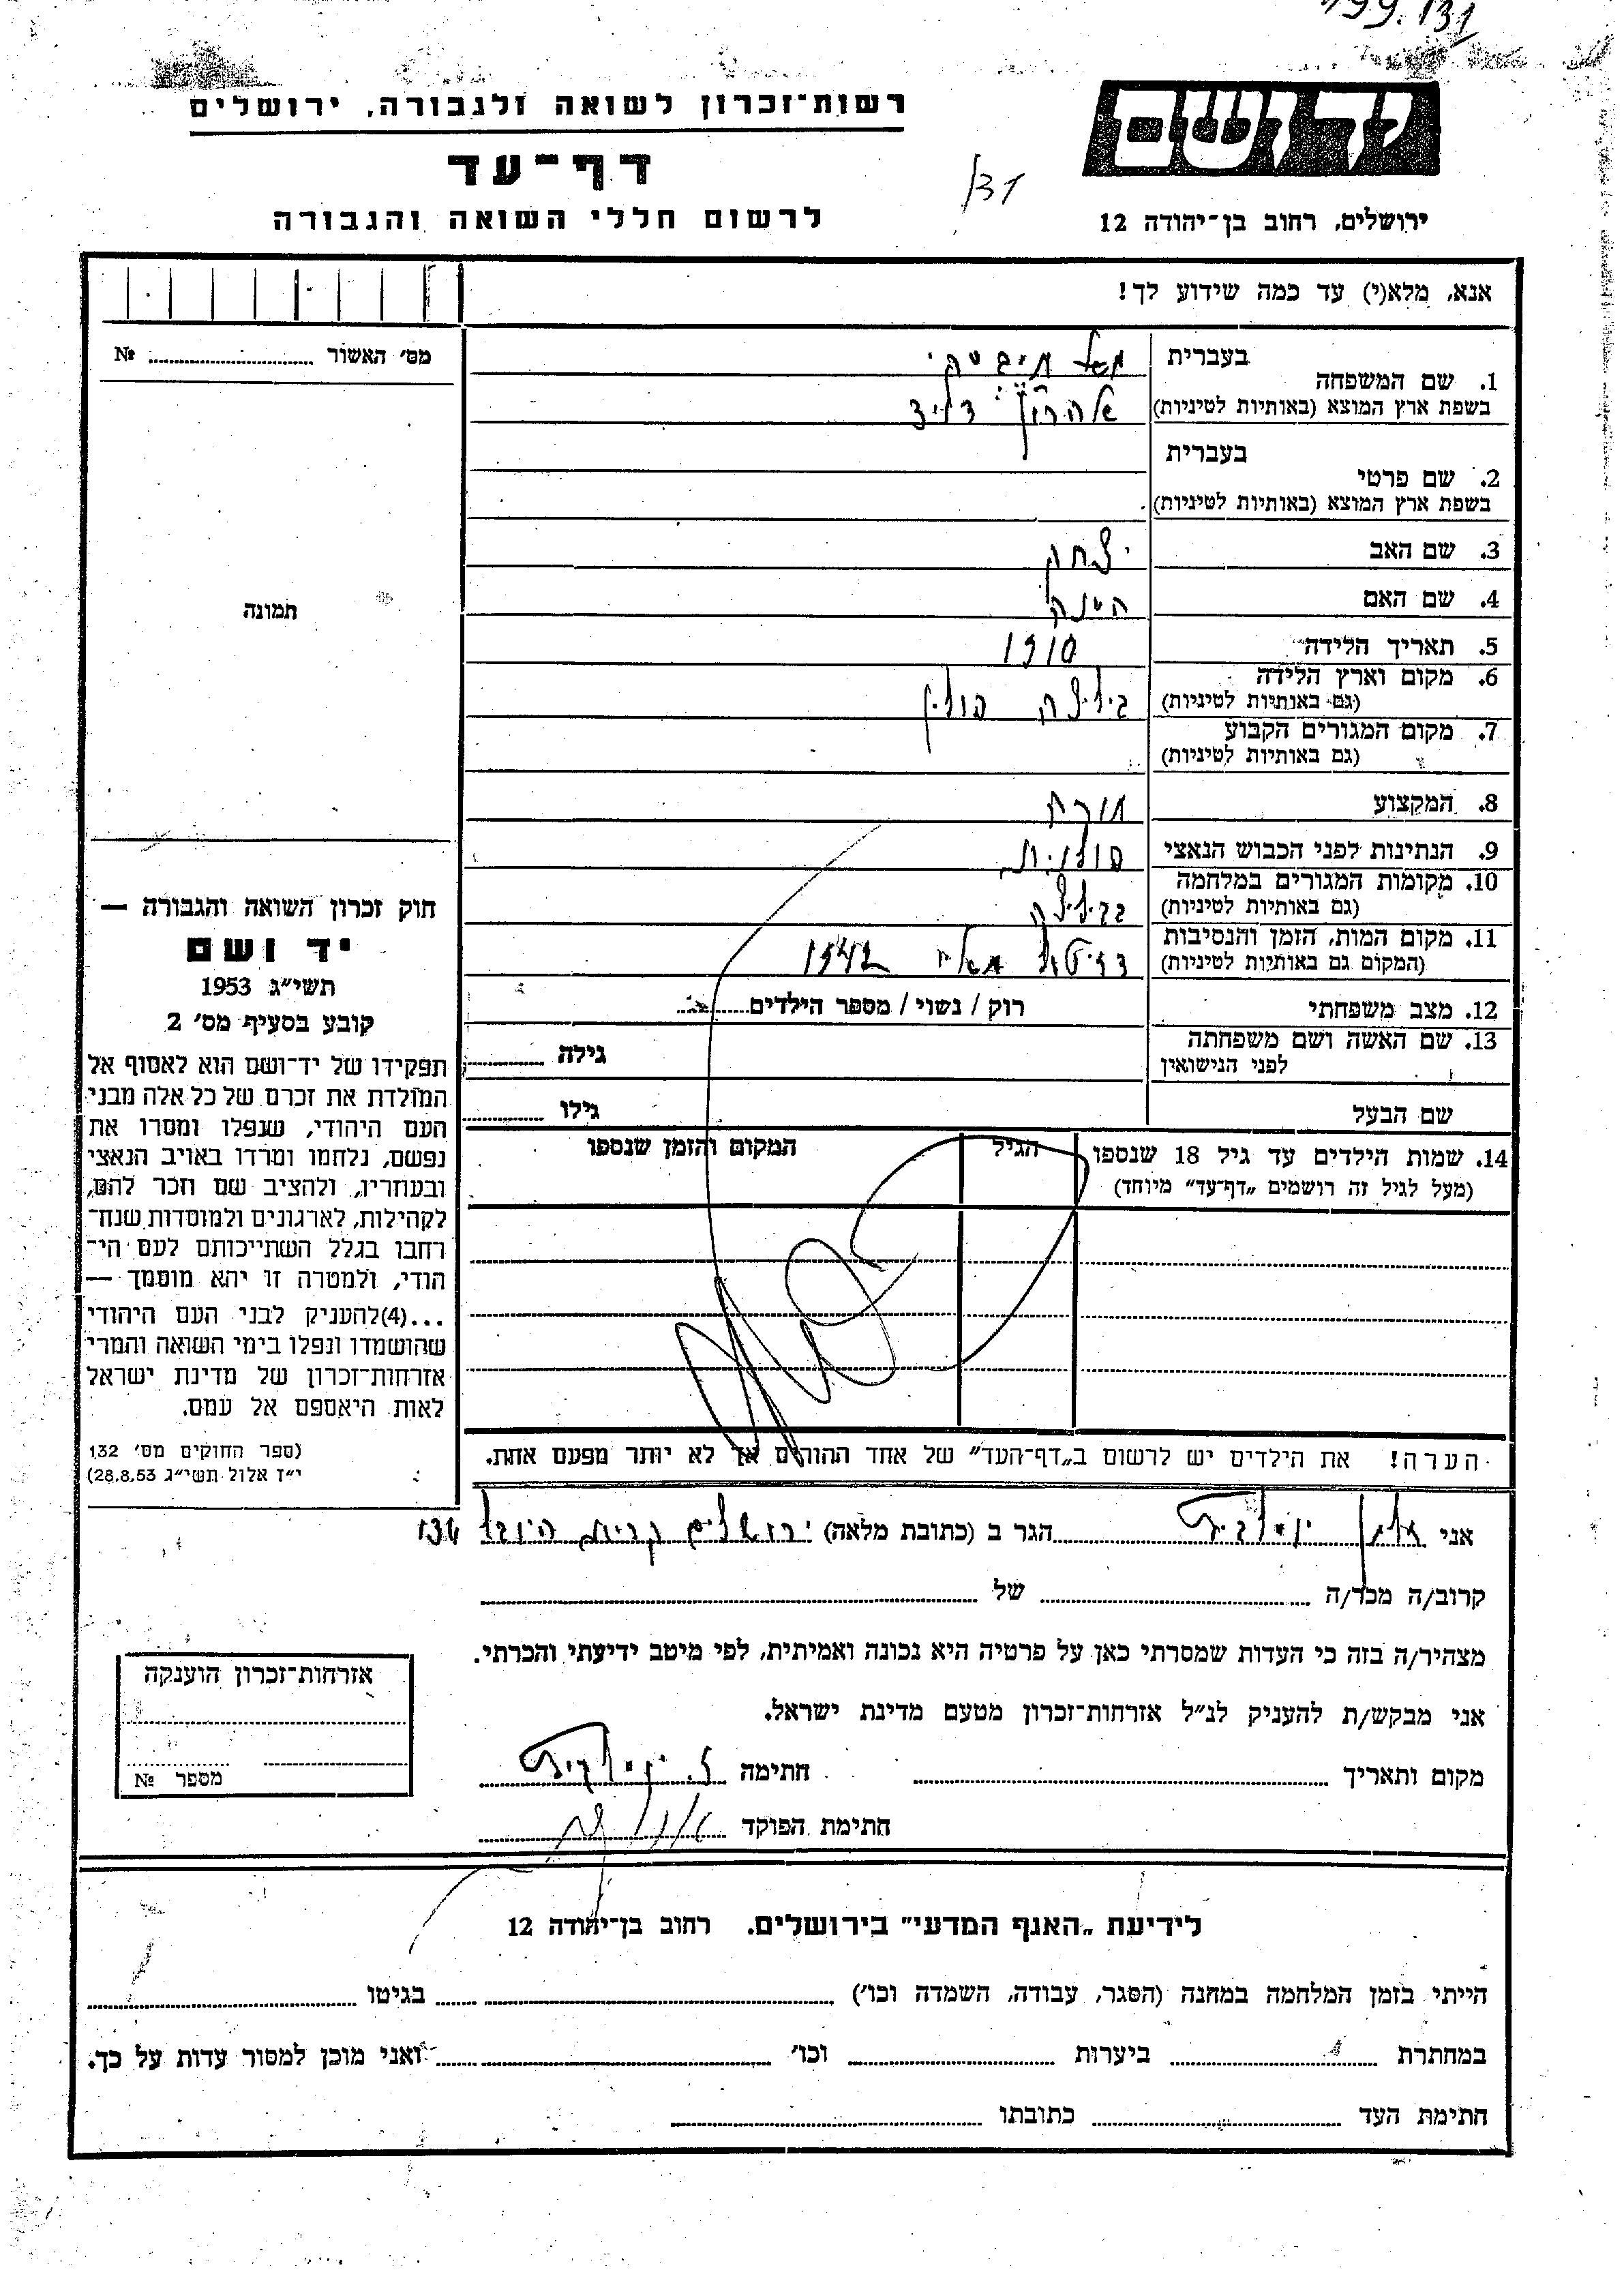 199.131
יד ושם
רשות־זכרון לשואה ולגבורה, ירושלים
דף־עד
131
ירושלים, רחוב בן־יהודה 12
לרשום חללי השואה והגבורה
אנא, מלא(י) עד כמה שידוע לך!
מס׳ האשור № 
תמונה
1. שם המשפחה
בעברית
בשפת ארץ המוצא (באותיות לטיניות)
אהרון דויד
2. שם פרטי
בעברית
בשפת ארץ המוצא (באותיות לטיניות)
3. שם האב יצחק
4. שם האם
5. תאריך הלידה 1910
6. מקום וארץ הלידה
(גם באותיות לטיניות) פולין
7. מקום המגורים הקבוע
(גם באותיות לטיניות)
8. המקצוע מורה
9. הנתינות לפני הכבוש הנאצי פולנית
10. מקומות המגורים במלחמה
(גם באותיות לטיניות)
11. מקום המות, הזמן והנסיבות
(המקום גם באותיות לטיניות) 1942
12. מצב משפחתי רוק / נשוי / מספר הילדים
13. שם האשה ושם משפחתה
לפני הנישואין גילה
שם הבעל גילו
14. שמות הילדים עד גיל 18 שנספו הגיל המקום והזמן שנספו
(מעל לגיל זה רושמים „דף־עד״ מיוחד)
הערה! את הילדים יש לרשום ב„דף־העד״ של אחד ההורים אך לא יותר מפעם אחת.
חוק זכרון השואה והגבורה —
יד ושם
תשי״ג 1953
קובע בסעיף מס׳ 2
תפקידו של יד־ושם הוא לאסוף אל
המולדת את זכרם של כל אלה מבני
העם היהודי, שנפלו ומסרו את
נפשם, נלחמו ומרדו באויב הנאצי
ובעוזריו, ולהציב שם וזכר להם,
לקהילות, לארגונים ולמוסדות שנח־
רבו בגלל השתייכותם לעם הי־
הודי, ולמטרה זו יהא מוסמך —
...(4)להעניק לבני העם היהודי
שהושמדו ונפלו בימי השואה והמרי
אזרחות־זכרון של מדינת ישראל
לאות היאספם אל עמם.
(ספר החוקים מס׳ 132
י״ז אלול תשי״ג 28.8.53)
אני הגר ב (כתובת מלאה) ירושלים קרית היובל 134
קרוב/ה מכר/ה של
מצהיר/ה בזה כי העדות שמסרתי כאן על פרטיה היא נכונה ואמיתית, לפי מיטב ידיעתי והכרתי.
אני מבקש/ת להעניק לנ״ל אזרחות־זכרון מטעם מדינת ישראל.
מקום ותאריך חתימה
חתימת הפוקד
אזרחות־זכרון הוענקה
מספר №
לידיעת „האגף המדעי״ בירושלים. רחוב בן־יהודה 12
הייתי בזמן המלחמה במחנה (הסגר, עבודה, השמדה וכו׳) בגיטו
במחתרת ביערות וכו׳ ואני מוכן למסור עדות על כך.
חתימת העד כתובתו